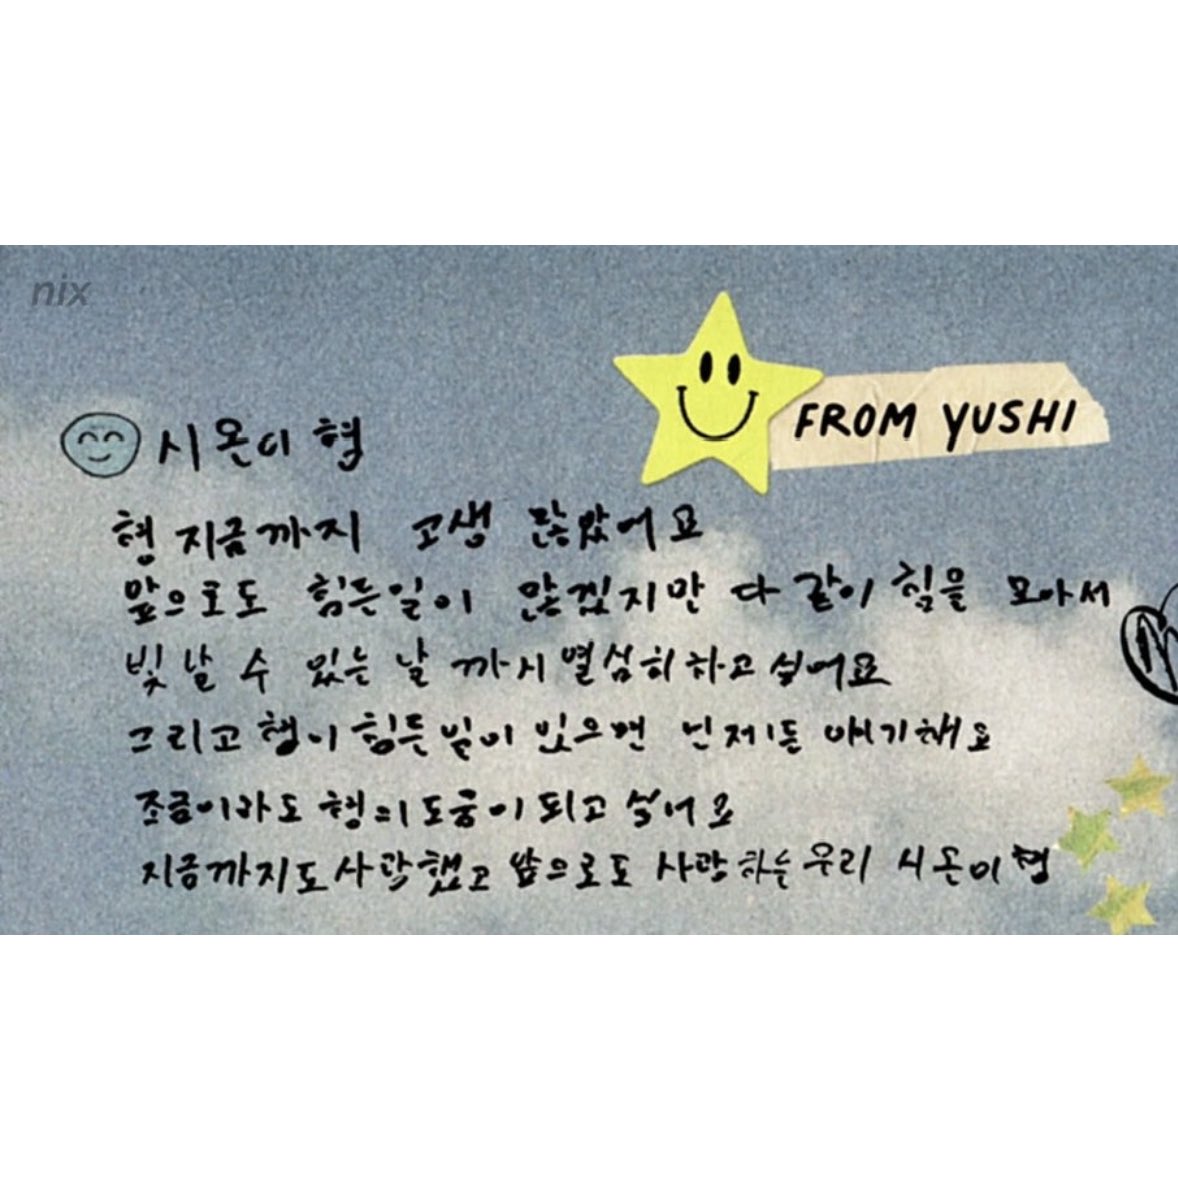 nix
FROM YUSHI
시온이 형
형 지금까지 고생 많았어요
앞으로도 힘든일이 많겠지만 다 같이 힘을 모아서
빛날 수 있는 날 까지 열심히하고 싶어요
그리고 형이 힘든 일이 있으면 언제든 얘기해요
조금이라도 형의 도움이 되고 싶어요
지금까지도 사랑했고 앞으로도 사랑하는 우리 시온이 형